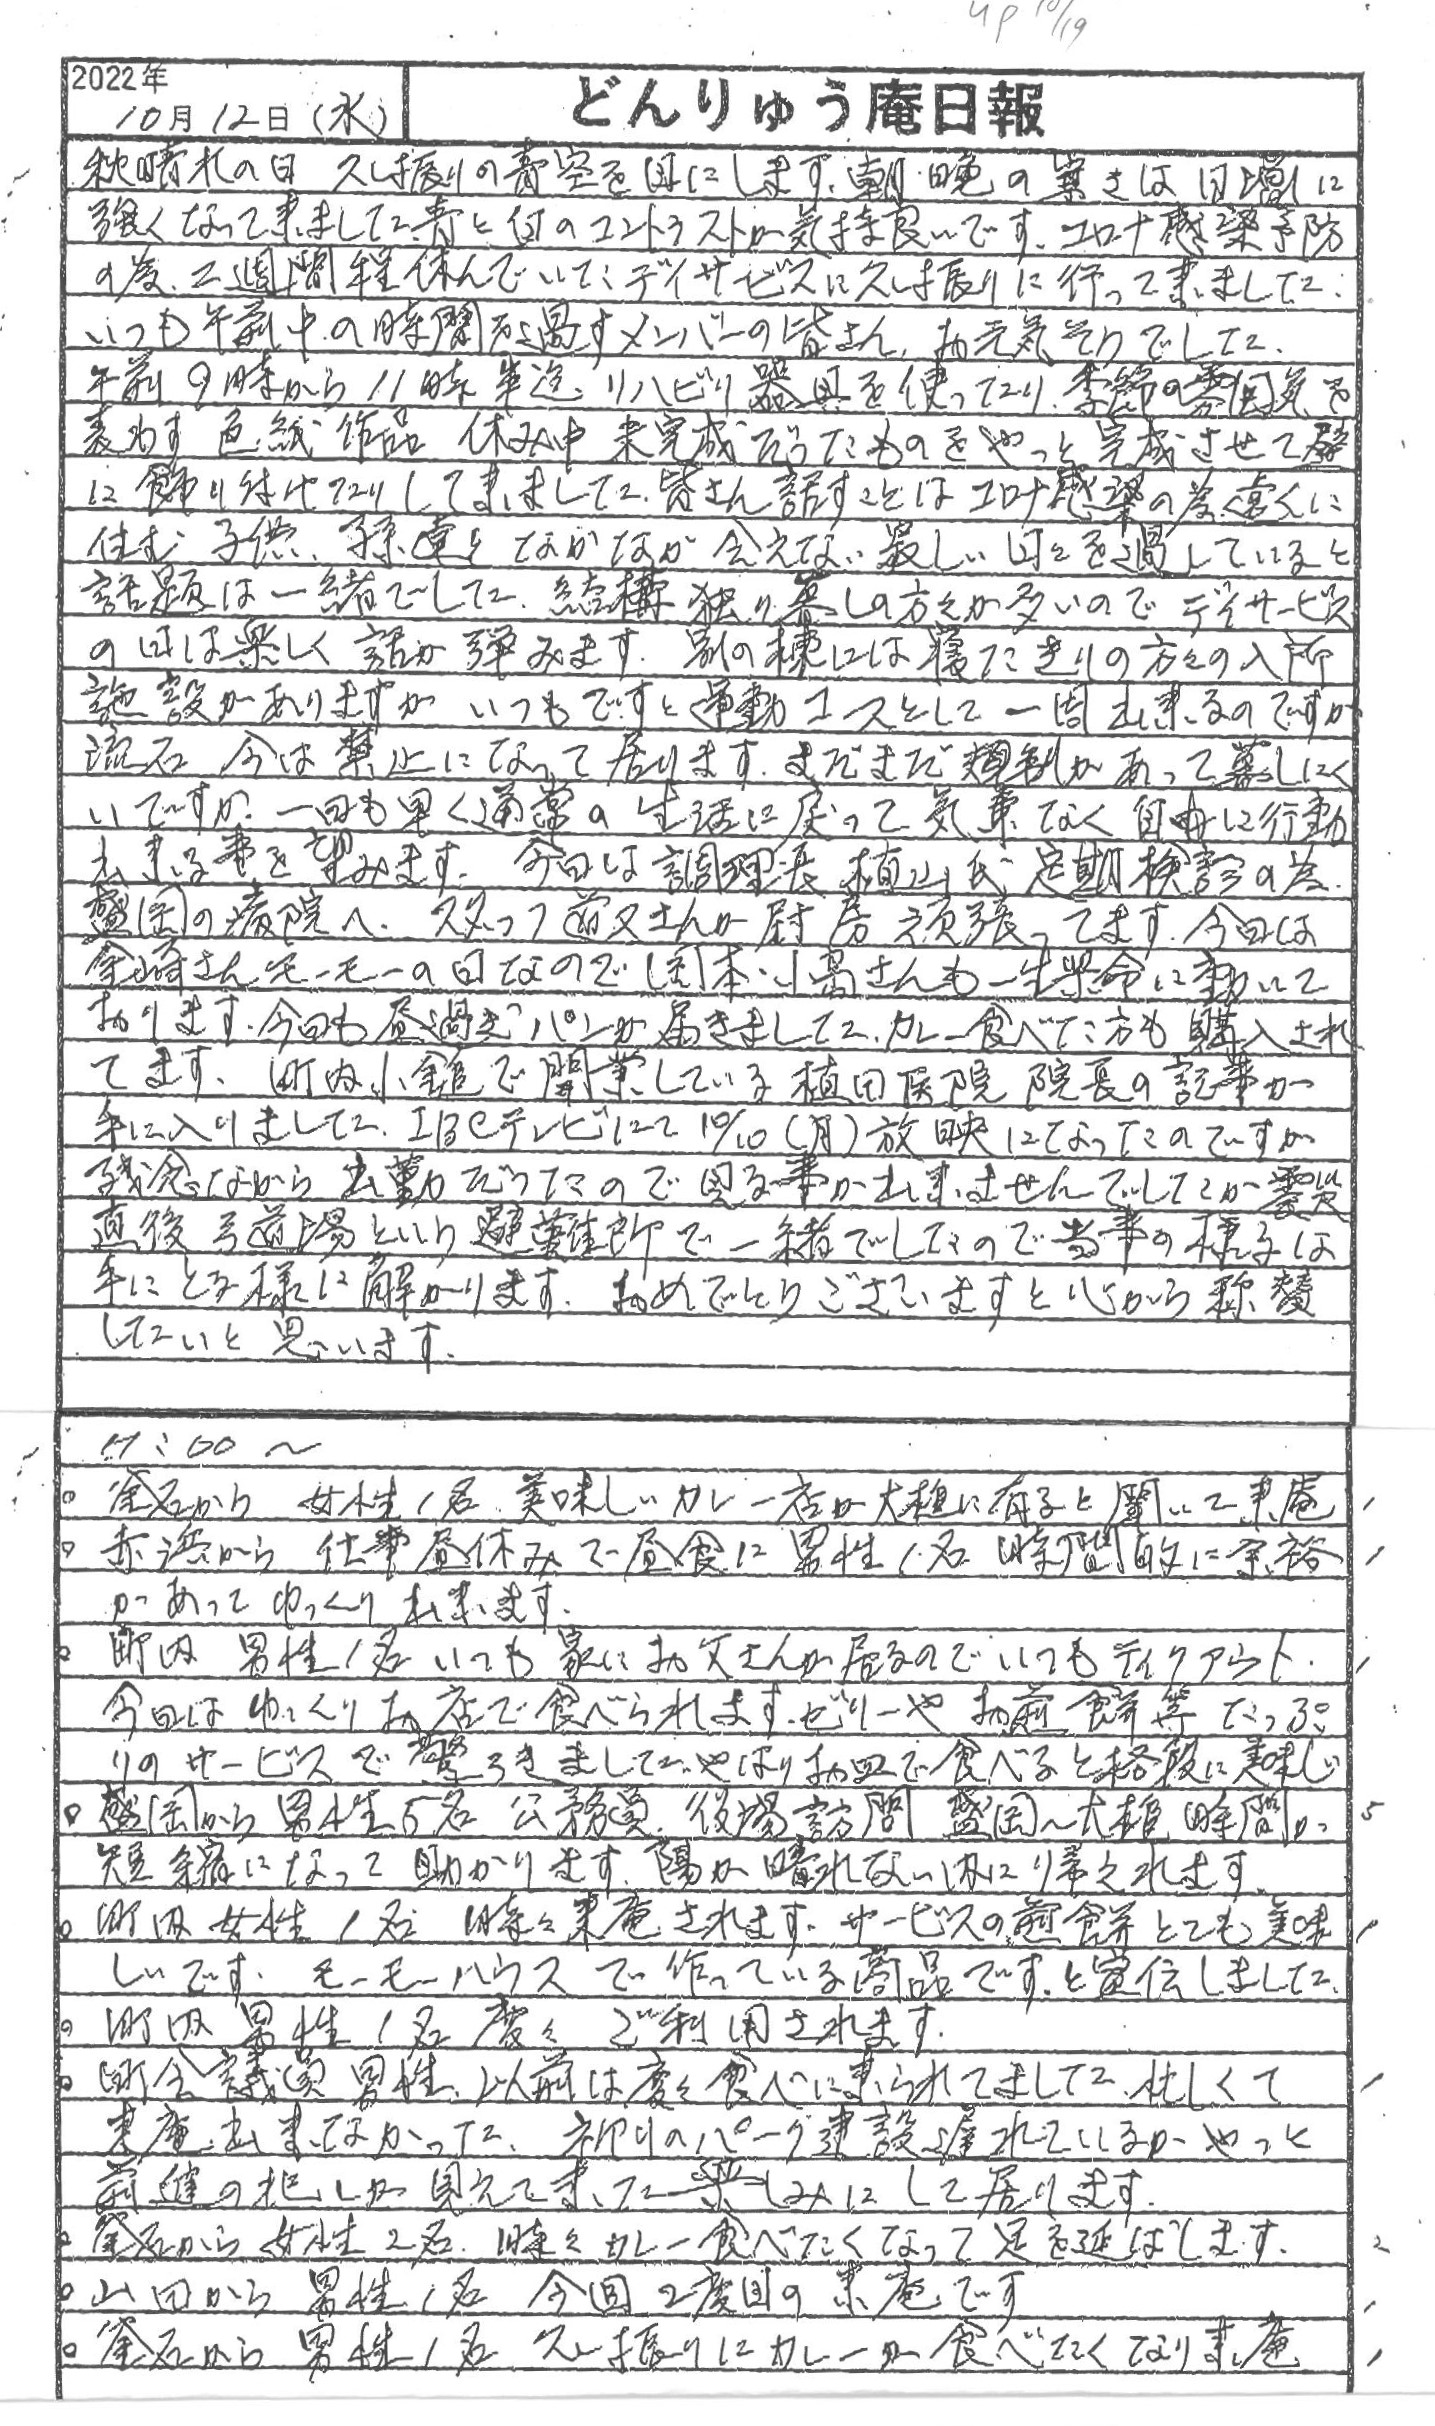 up 10/19
2022年
10月12日(水)
どんりゅう庵日報
秋晴れの日 久し振りの青空を目にします。朝・晩の寒さは日増しに
強くなって来ました。青と白のコントラストが気持良いです。コロナ感染予防
の為、2週間程休んでいたデイサービスに久し振りに行って来ました。
いつも午前中の時間を過すメンバーの皆さん、お元気そうでした。
午前9時から11時半迄、リハビリ器具を使ったり、季節の雰囲気を
表わす色紙作品 休み中未完成だったものをやっと完成させて壁
に飾り付けたりして来ました。皆さん話すことはコロナ感染の為、遠くに
住む子供、孫達となかなか会えない寂しい日々を過していると
話題は一緒でした。結構独り暮しの方々が多いのでデイサービス
の日は楽しく話が弾みます。別の棟には寝たきりの方々の入所
施設がありますが いつもですと運動コースとして一周出来るのですが
流石 今は禁止になって居ります。まだまだ規制があって暮しにく
いですが、一日も早く通常の生活に戻って気兼なく自由に行動
出来る事を望みます。今日は調理長 植山氏 定期検診の為、
盛岡の病院へ。スタッフ前又さんが厨房頑張ってます。今日は
釜崎さんモーモーの日なので岡本・小高さんも一生懸命に動いて
おります。今日も昼過ぎパンが届きました。カレー食べた方も購入され
てます。町内小鎚で開業している植田医院 院長の記事が
手に入りました。IBCテレビにて10/10(月)放映になったのですが
残念ながら出勤だったので見る事が出来ませんでしたが震災
直後弓道場という避難所で一緒でしたので当事の様子は
手にとる様に解かります。おめでとうございますと心から称賛
したいと思います。
11:00〜
○ 釜石から 女性1名 美味しいカレー店が大槌に有ると聞いて来庵 1
○ 赤浜から 仕事昼休みで昼食に男性1名 時間的に余裕 1
があってゆっくり出来ます。
○ 町内 男性1名 いつも家にお父さんが居るのでいつもテイクアウト。 1
今日はゆっくりお店で食べられます。ゼリーやお煎餅等 たっぷ
りのサービスで驚ろきました。やはりお皿で食べると格段に美味しい
○ 盛岡から男性5名 公務員。役場訪問 盛岡〜大槌 時間が 5
短縮になって助かります。陽が暮れない内にり帰えれます。
○ 町内 女性1名 時々来庵されます。サービスの煎餅とても美味 1
しいです。モーモーハウスで作っている商品です。と宣伝しました。
○ 町内 男性1名 度々ご利用されます。
○ 町会議員 男性、以前は度々食べに来られてました。忙しくて 1
来庵出来なかった。祈りのパーク建設遅れているがやっと
前進の兆しが見えて来た 楽しみにして居ります。
○ 釜石から女性2名、時々カレー食べたくなって足を延ばします。 2
○ 山田から 男性1名 今回2度目の来庵です 1
○ 釜石から 男性1名 久し振りにカレーが食べたくなり来庵 1